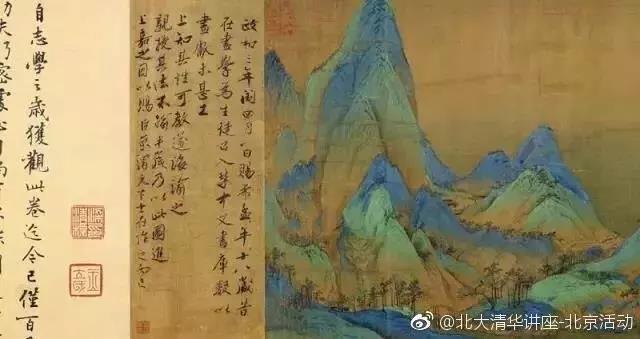 政和三年閏四月一日賜希孟年十八歲昔
在畫學為生徒召入禁中文書庫數以
畫獻未甚工
上知其性可教遂誨諭之
親授其法不踰半歲乃以此圖進
上嘉之因以賜臣京謂天下士在作之而已
自志學之歲獲觀此卷迄今已僅百
@北大清华讲座-北京活动